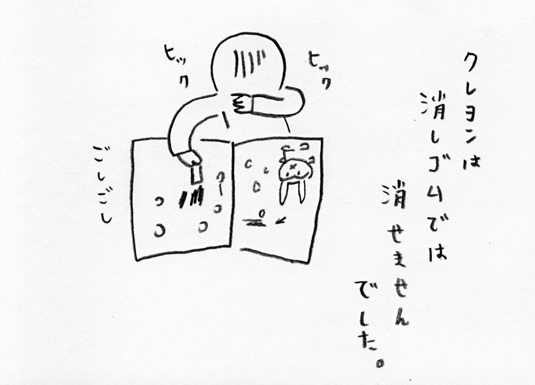 クレヨンは
消しゴムでは
消せません
でした。
ヒック
ヒック
ごしごし